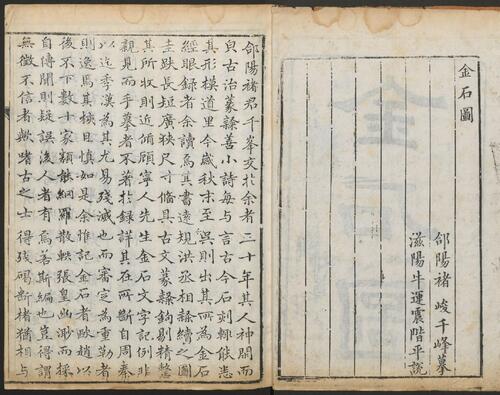 金石圖
郃陽褚峻千峰摹
滋陽牛運震階平說
郃陽褚君千峯交於余者三十年其人神閒而
貞古治篆隸善小詩每与言古今石刻輒能悉
其形模道里今歲秋末至吳則出其所為金石
經眼錄者余讀焉其書遠規洪丞相隸續之圖
圭趺長短廣狹尺寸備具古文篆隸鉤剔精整
其所收則近傾顧寧人先生金石文字記例非
親見而手摹者不著於錄詳其在所斷自周秦
以迄季漢為其尤易殘滅也而審定為重勒者
則逸焉其挾且慎如是余惟記金石者歐趙以
後不下數十家顧能網羅散軼張皇幽渺而採
自傳聞則疑誤後人者有焉若斯編也豈得謂
無徵不信者歟嗜古之士得殘碣斷楮猶相与